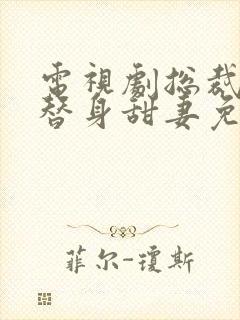 電視劇總裁
替身甜妻免
菲尔-琼斯